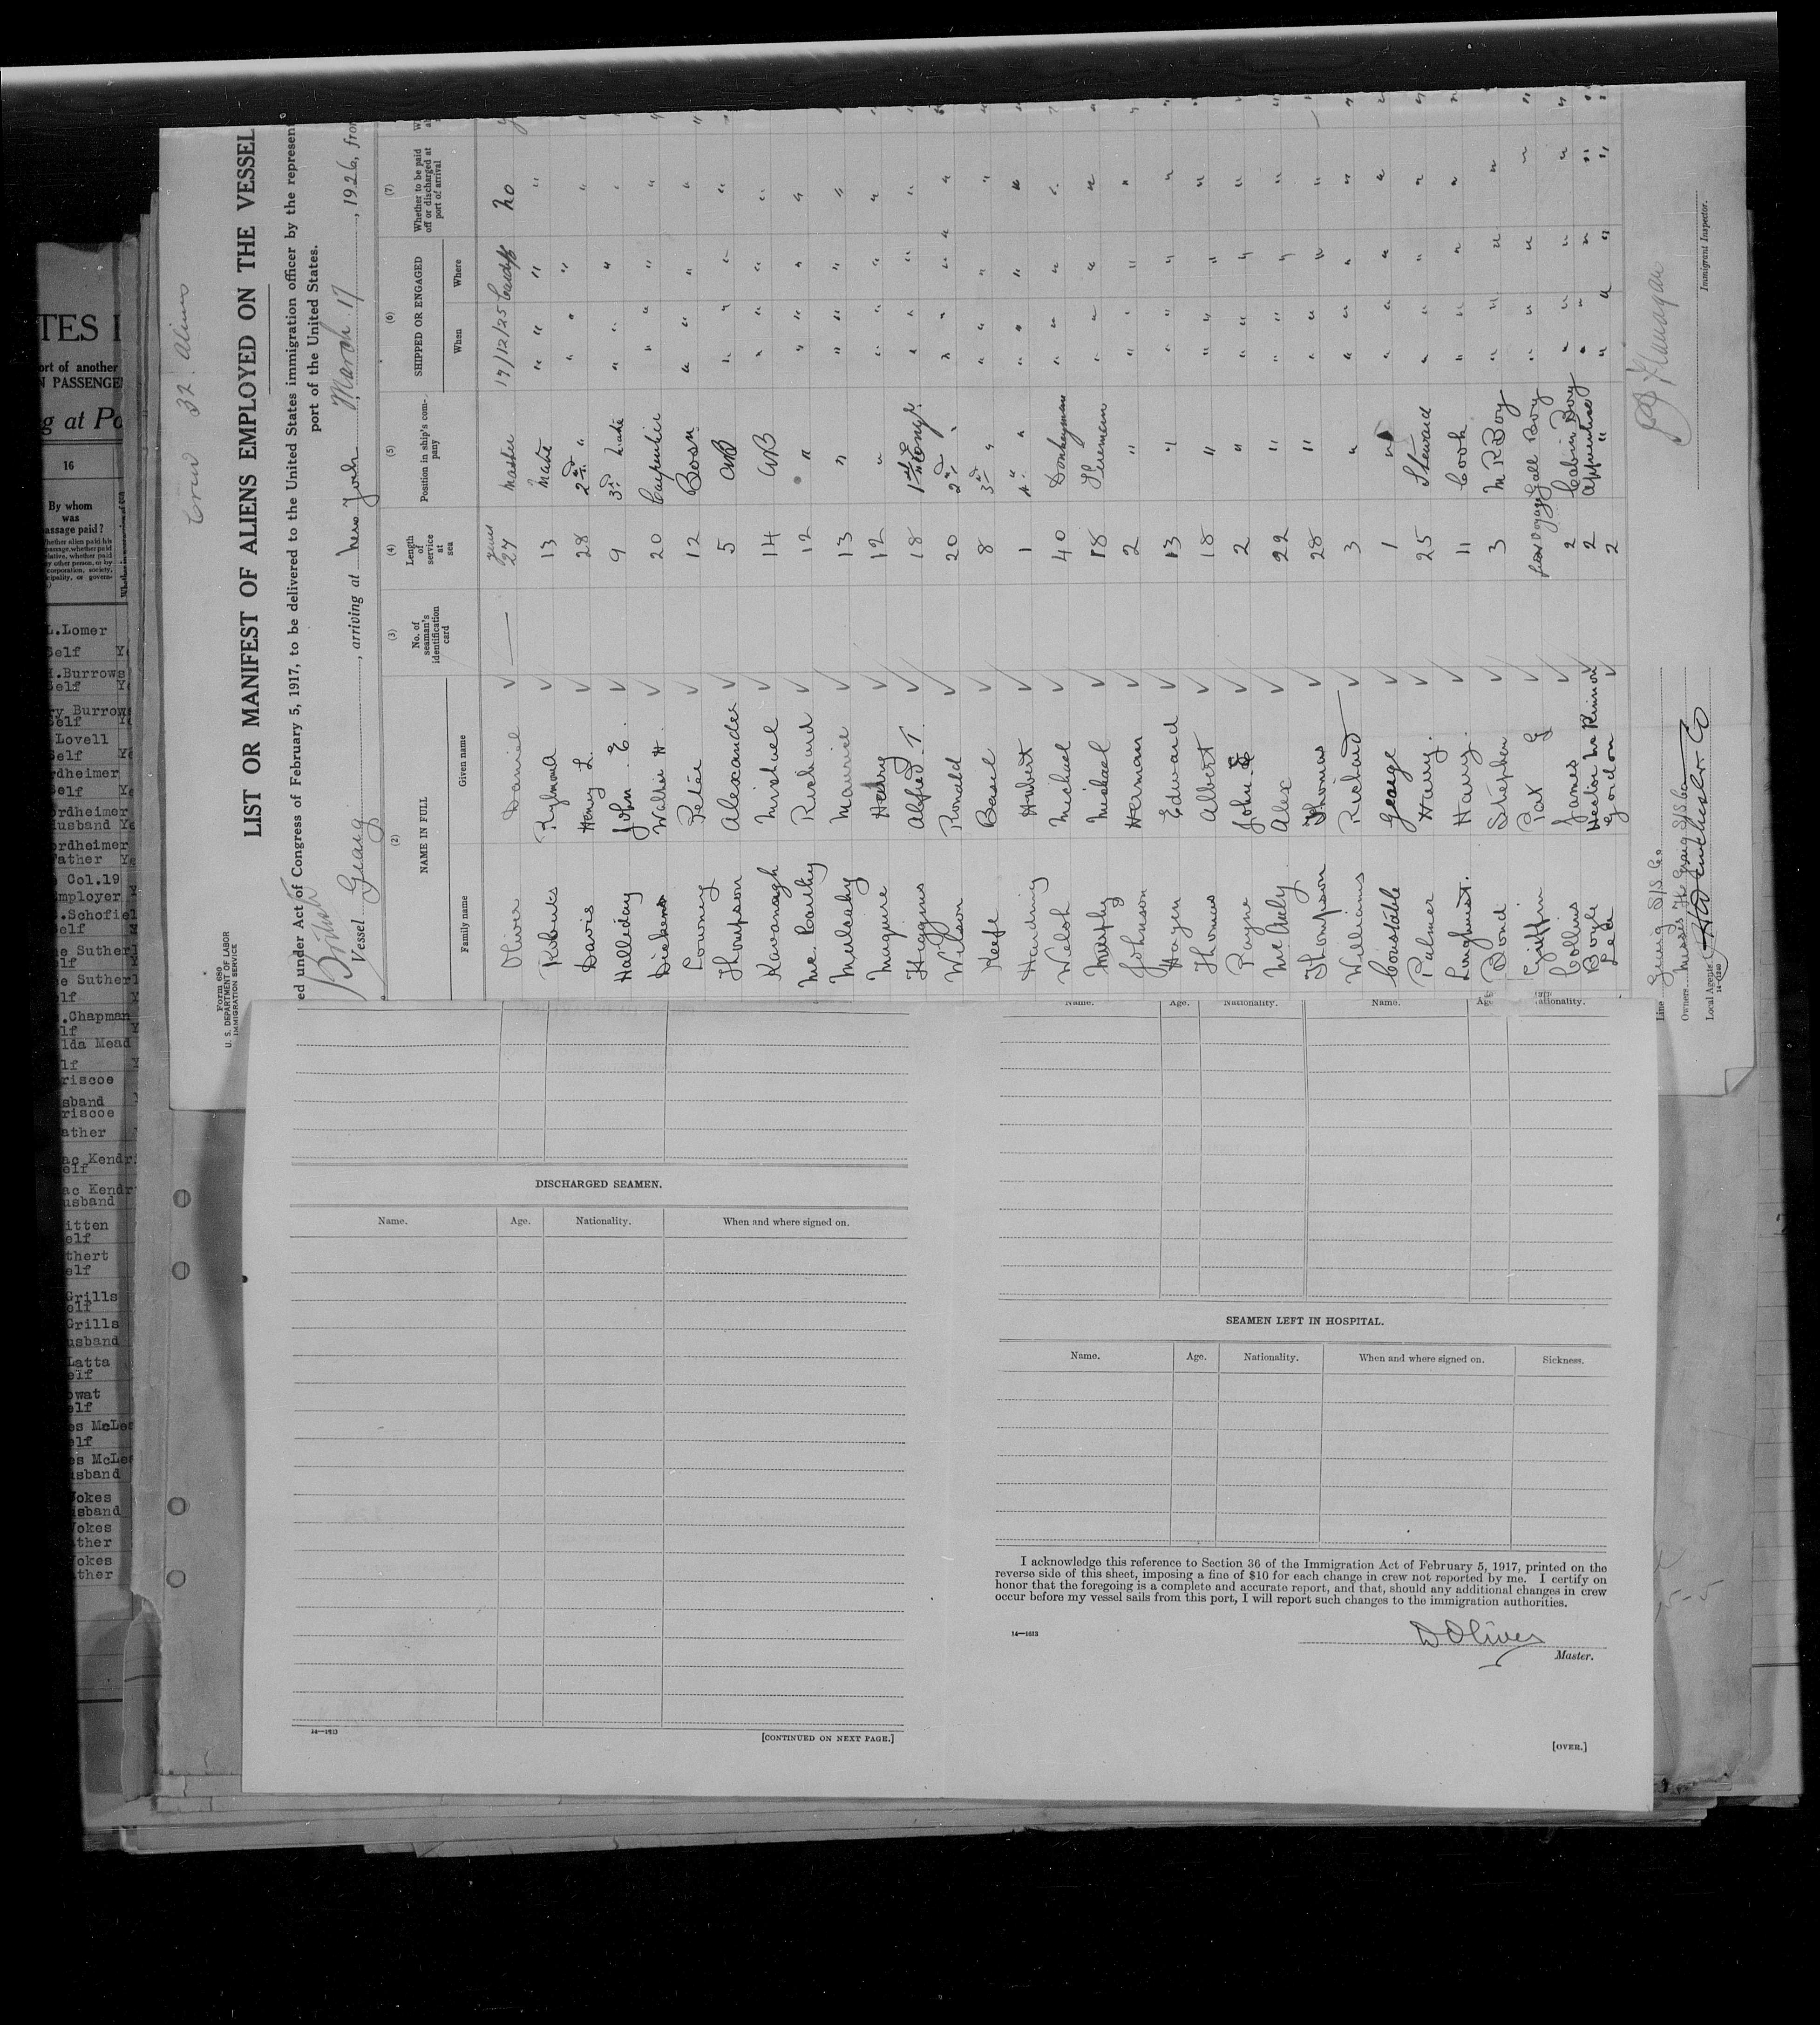 Crew 32. Aliens
Form 680
U. S. DEPARTMENT OF LABOR
IMMIGRATION SERVICE
LIST OR MANIFEST OF ALIENS EMPLOYED ON THE VESSEL
ed under Act of Congress of February 5, 1917, to be delivered to the United States immigration officer by the represen
port of the United States.
British
Vessel Graig, arriving at New York March 17, 1926, from
(2) (3) (4) (5) (6) (7)
NAME IN FULL No. of seaman's identification card Length of service at sea Position in ship's company SHIPPED OR ENGAGED Whether to be paid off or discharged at port of arrival
Family name Given name When Where
Oliver Daniel — years 27 Master 17/12/25 Cardiff No
Roberts Raymond 13 Mate " " " "
Davis Henry L. 28 2nd " " " " "
Halliday John E. 9 3rd Mate " " " "
Dickens Walter H. 20 Carpenter " " " "
Lowney Peter 12 Bosn " " " "
Thompson Alexander 5 AB " " " "
Kavanagh Michael 14 AB " " " "
Mc Carthy Richard 12 " " " " "
Mulcahy Maurice 13 " " " " "
Maguire Henry 12 " " " " "
Higgins Alfred T. 18 1st Eng'r. " " " "
Wilson Ronald 20 2nd " " " " "
Keefe Basil 8 3rd " " " " "
Harding Hubert 1 4 " " " " "
Welsh Michael 40 Donkeyman " " " "
Murphy Michael 18 Firemen " " " "
Johnson Herman 2 " " " " "
Hayen Edward 13 " " " " "
Thomas Albert 18 " " " " "
Rayne John E 2 " " " " "
Mc Nely Alex 22 " " " " "
Thompson Thomas 28 " " " " "
Williams Richard 3 " " " " "
Constable George 1 " " " " "
Palmer Harry. 25 Steward " " " "
Langhurst. Harry. 11 Cook " " " "
Bond Stephen 3 M R Boy " " " "
Griffin Pat G first voyage Gall Boy " " "
Collins James 2 Cabin Boy " " " "
Boyle Hector Mc Kinnon 2 Apprentice " " " "
Lede Gordon 2 " " " " "
Line Graig S/S Co.
Owners Messrs The Graig S/S Co
Local Agents
14-1240
Immigrant Inspector.
TES I
ort of another
N PASSENGE
g at Po
16
By whom
was
assage paid?
L.Lomer
Self Ye
H.Burrows
Self Ye
ry Burrows
Self Y
Lovell
Self Ye
rdheimer
Self Ye
ordheimer
Husband Ye
ordheimer
Father Ye
Col.19
Employer
.Schofiel
Self
ne Suther
lf
e Suther
lf
.Chapman
lf
lda Mead
lf
riscoe
sband
riscoe
ather
ac Kendr
elf
ac Kendr
usband
itten
elf
thert
elf
Grills
elf
Grills
usband
Latta
elf
owat
elf
es McLea
elf
es McLea
usband
okes
sband
okes
ther
okes
ther
DISCHARGED SEAMEN.
Name. Age. Nationality. When and where signed on.
14—1613
[CONTINUED ON NEXT PAGE.]
Name. Age. Nationality. Name. Age. Nationality.
SEAMEN LEFT IN HOSPITAL.
Name. Age. Nationality. When and where signed on. Sickness.
I acknowledge this reference to Section 36 of the Immigration Act of February 5, 1917, printed on the
reverse side of this sheet, imposing a fine of $10 for each change in crew not reported by me. I certify on
honor that the foregoing is a complete and accurate report, and that, should any additional changes in crew
occur before my vessel sails from this port, I will report such changes to the immigration authorities.
14—1613
D Oliver
Master.
[OVER.]